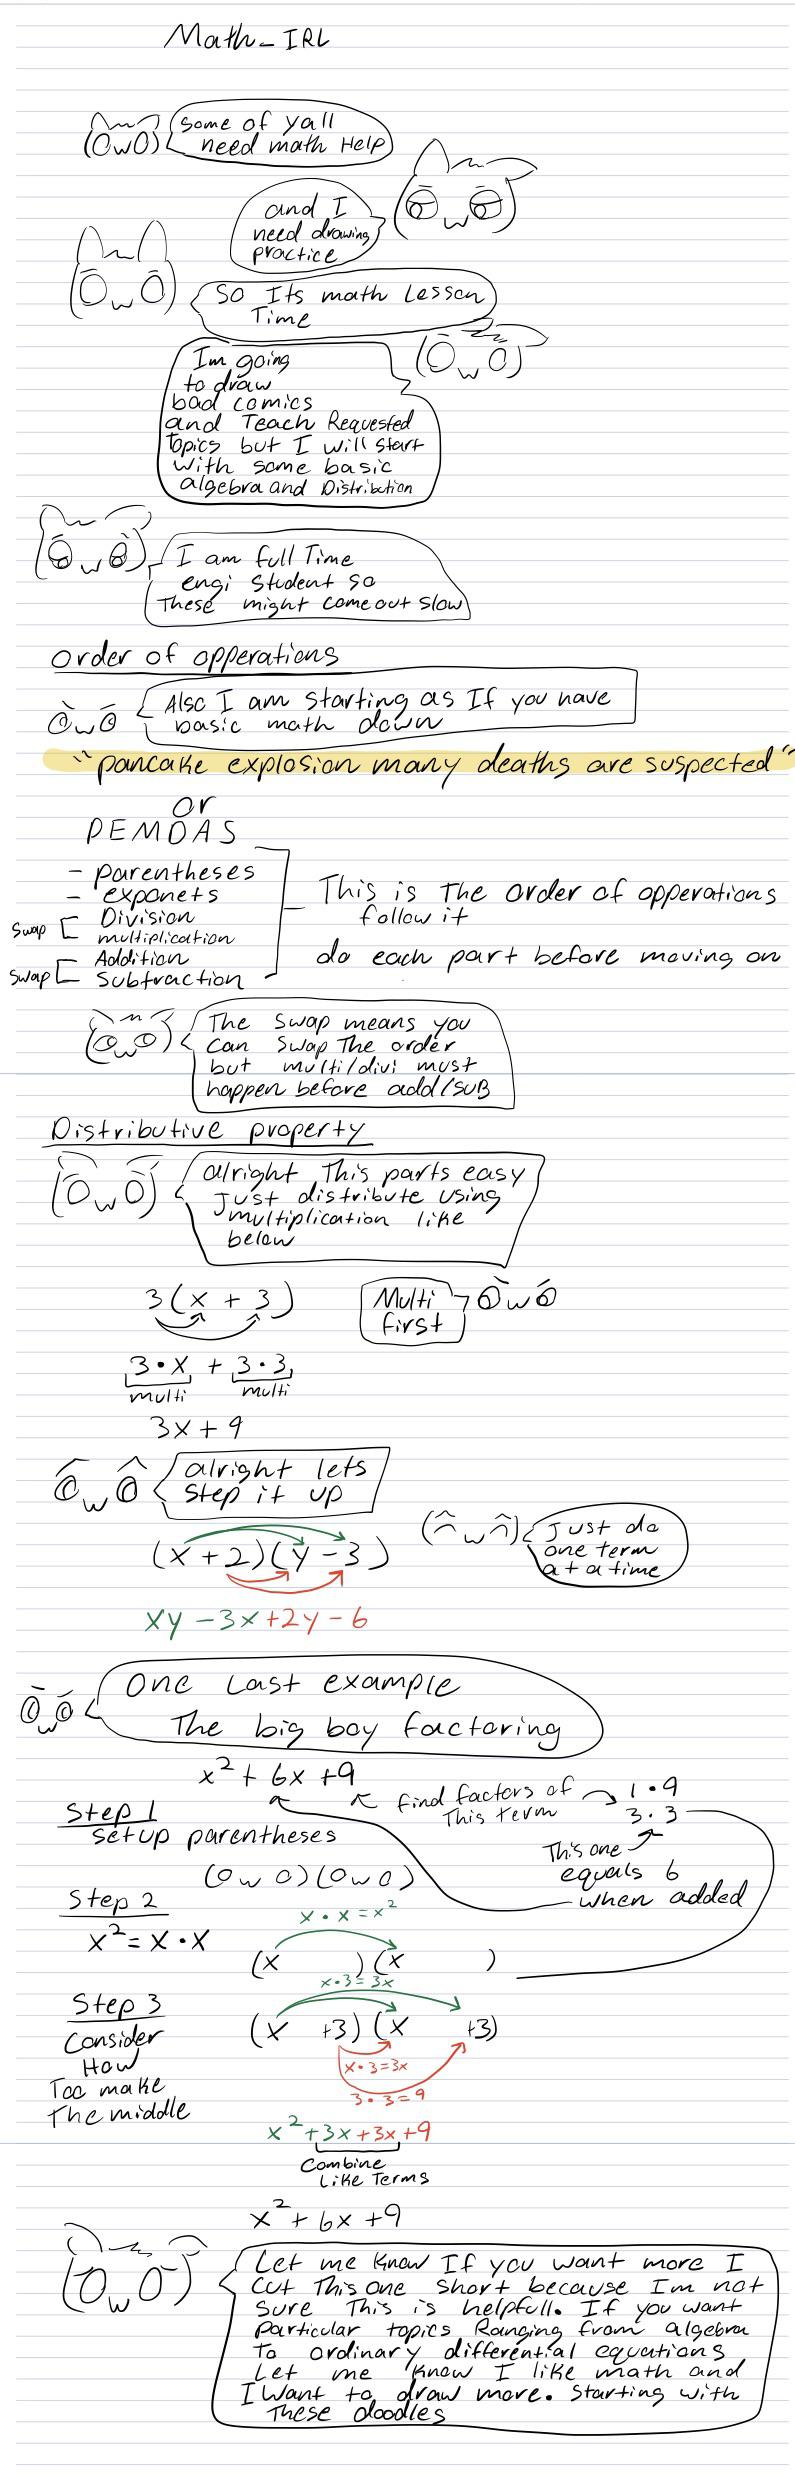 Math_IRL
(OwO)
some of yall
need math Help
and I
need drawing
practice
OwO
OwO
So Its math Lesson
Time
(OwO)
Im going
to draw
bad comics
and Teach Requested
Topics but I will start
with some basic
algebra and Distribution
OwO
I am full Time
engi student so
These might come out slow
Order of opperations
OwO
Also I am starting as If you have
basic math down
"pancake explosion many deaths are suspected"
or
PEMDAS
- parentheses
- exponets
Swap [ Division
multiplication
Swap [ Addition
subtraction
This is The order of opperations
follow it
do each part before moving on
(OwO)
The swap means you
can swap The order
but multi/divi must
happen before add/SUB
Distributive property
(OwO)
alright This parts easy
Just distribute using
multiplication like
below
3(x + 3)
Multi
first
OwO
3•x + 3•3
multi multi
3x + 9
OwO
alright lets
step it up
(x+2)(y-3)
(^w^)
Just do
one term
at a time
xy -3x+2y-6
OwO
One Last example
The big boy factoring
x²+ 6x +9
find factors of
This term
1•9
3•3
Step 1
setup parentheses
This one
equals 6
when added
(OwO)(OwO)
Step 2
x•x=x²
x²=x•x
(x )(x )
x•3=3x
Step 3
(x +3)(x +3)
Consider
How
Too make
The middle
x•3=3x
3•3=9
x²+3x+3x+9
Combine
Like Terms
x²+6x+9
(OwO)
Let me know If you want more I
cut This one short because Im not
sure This is helpfull. If you want
particular topics Ranging from algebra
To ordinary differential equations
Let me know I like math and
I want to draw more. starting with
These doodles